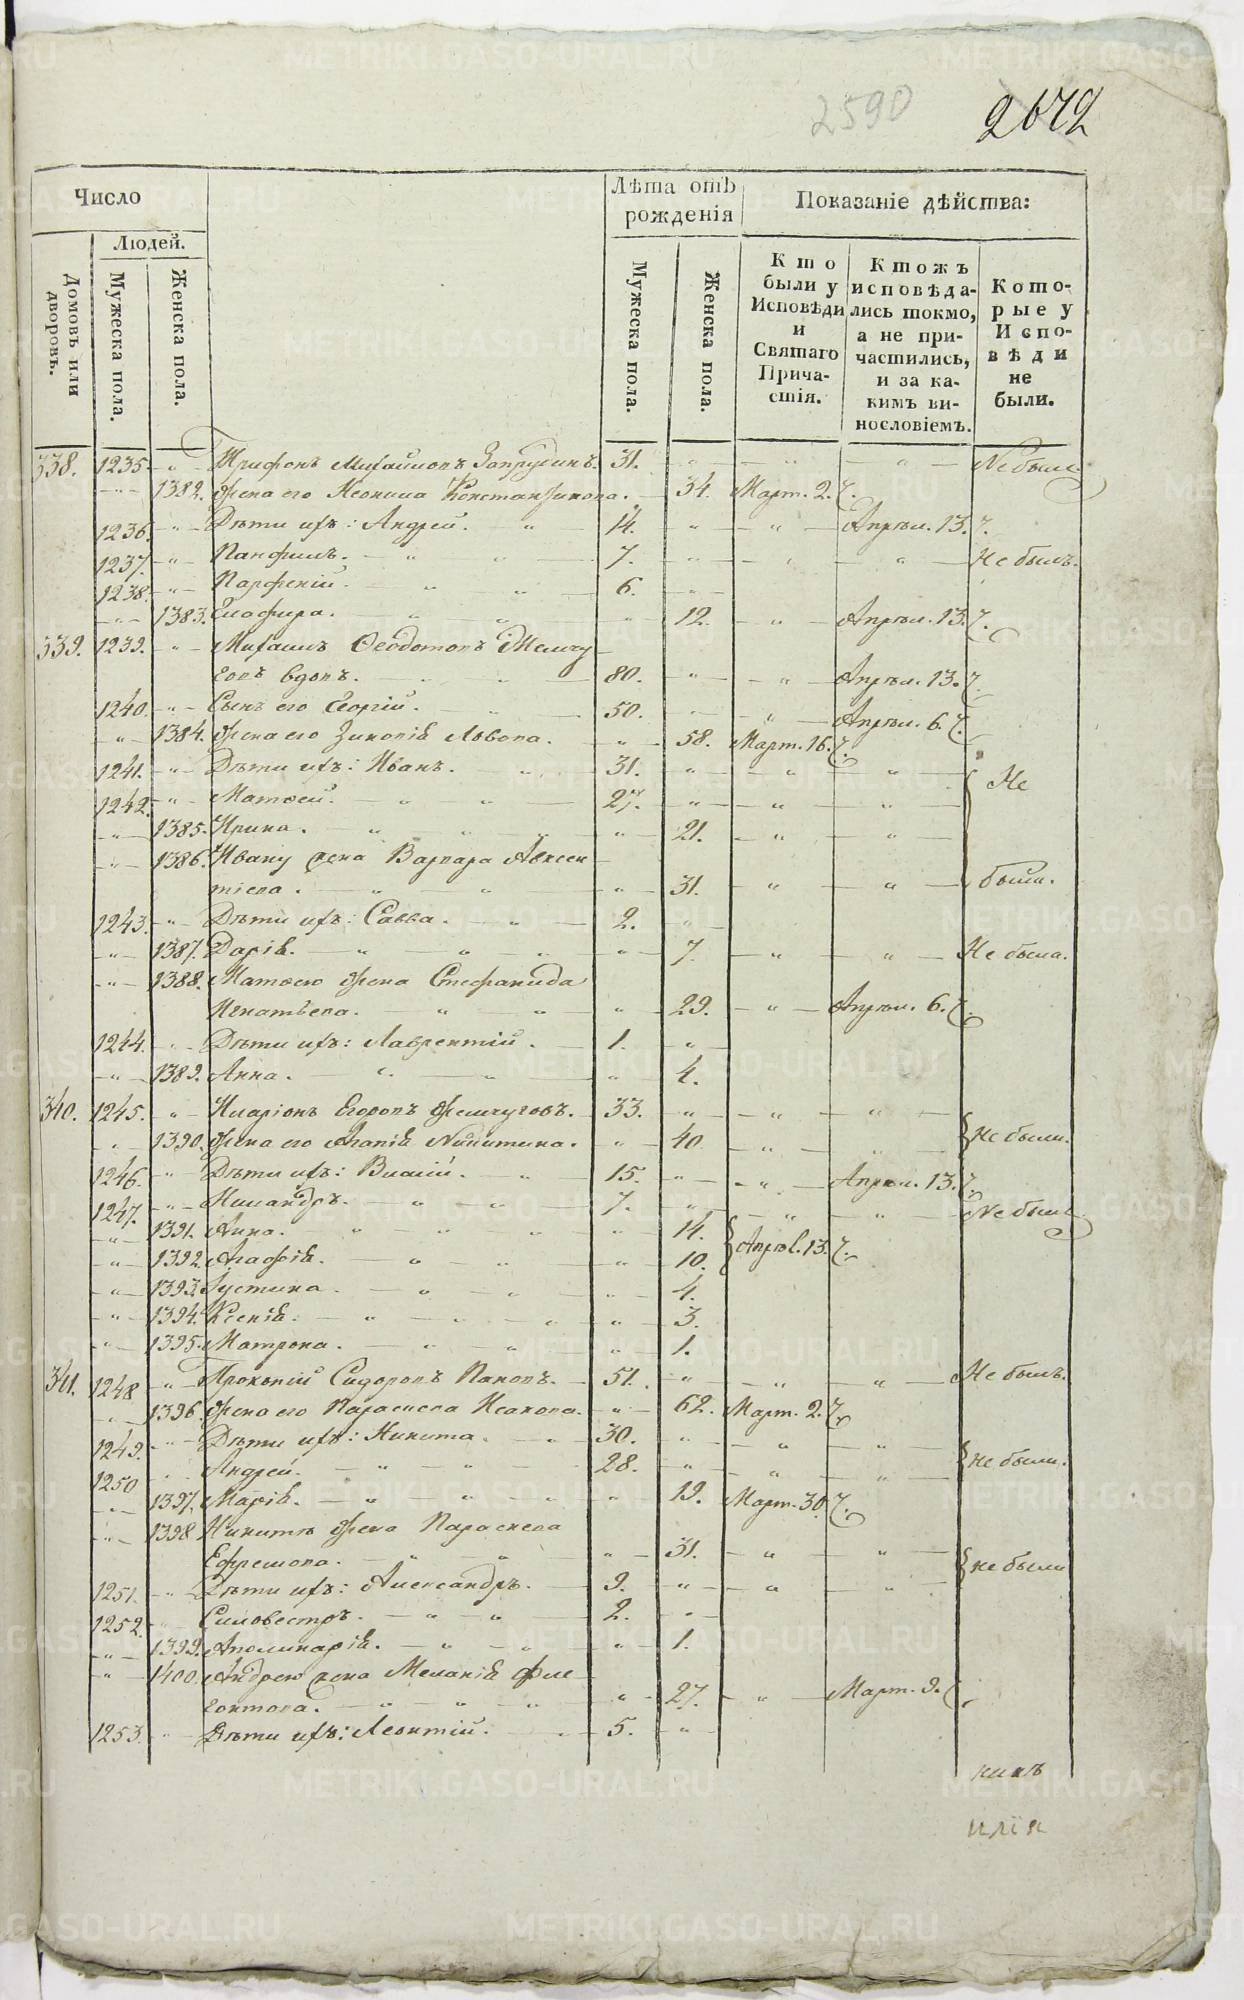 2590
2672
Число
Лѣта отъ рожденія
Показаніе дѣйства:
Людей.
Домовъ или дворовъ.
Мужеска пола.
Женска пола.
Мужеска пола.
Женска пола.
Кто были у Исповѣди и Святаго Причастія.
Ктожъ исповѣдались токмо, а не причастились, и за какимъ винословіемъ.
Которые у Исповѣди не были.
338. 1235. Трифонъ Михайловъ 31. Не былъ
1382. Жена его Константинова. 34. Март. 2.
1236. Дѣти ихъ: Андрей. 14. Апрѣл. 13.
1237. Панфилъ. 7. Не былъ.
1238. Парфеній. 6.
1383. Глафира. 12. Апрѣл. 13.
339. 1239. Михаилъ Ѳеодотовъ Жемчу
говъ вдовъ. 80. Апрѣл. 13.
1240. Сынъ его Георгій. 50. Апрѣл. 6.
1384. Жена его Зиновія Львова. 58. Март. 16.
1241. Дѣти ихъ: Иванъ. 31. Не
1242. Матѳей. 27.
1385. Ирина. 21.
1386. Ивану жена Варвара Авксен
тіева. 31. были.
1243. Дѣти ихъ: Савва. 2.
1387. Дарія. 7. Не была.
1388. Матѳею жена Стефанида
Игнатьева. 29. Апрѣл. 6.
1244. Дѣти ихъ: Лаврентій. 1.
1389. Анна. 4.
340. 1245. Иларіонъ Егоровъ Жемчуговъ. 33.
1390. Жена его Агапія Никитина. 40. Не были.
1246. Дѣти ихъ: Виталій. 15. Апрѣл. 13.
1247. Никандръ. 7. Не былъ
1391. Анна. 14.
1392. Агафія. 10. Апрѣл. 13.
1393. Іустина. 4.
1394. Ксенія. 3.
1395. Матрона. 1.
341. 1248. Прокопій Сидоровъ Пановъ. 51. Не былъ.
1396. Жена его Параскева Исакова. 62. Март. 2.
1249. Дѣти ихъ: Никита. 30.
1250. Андрей. 28. не были.
1397. Марія. 19. Март. 30.
1398. Никитѣ жена Параскева
Ефремова. 31. не были
1251. Дѣти ихъ: Александръ. 9.
1252. Силовестръ. 2.
1399. Аполинарія. 1.
1400. Андрею жена Меланія Фле
гонтова. 27. Март. 9.
1253. Дѣти ихъ: Леонтій. 5.
METRIKI.GASO-URAL.RU